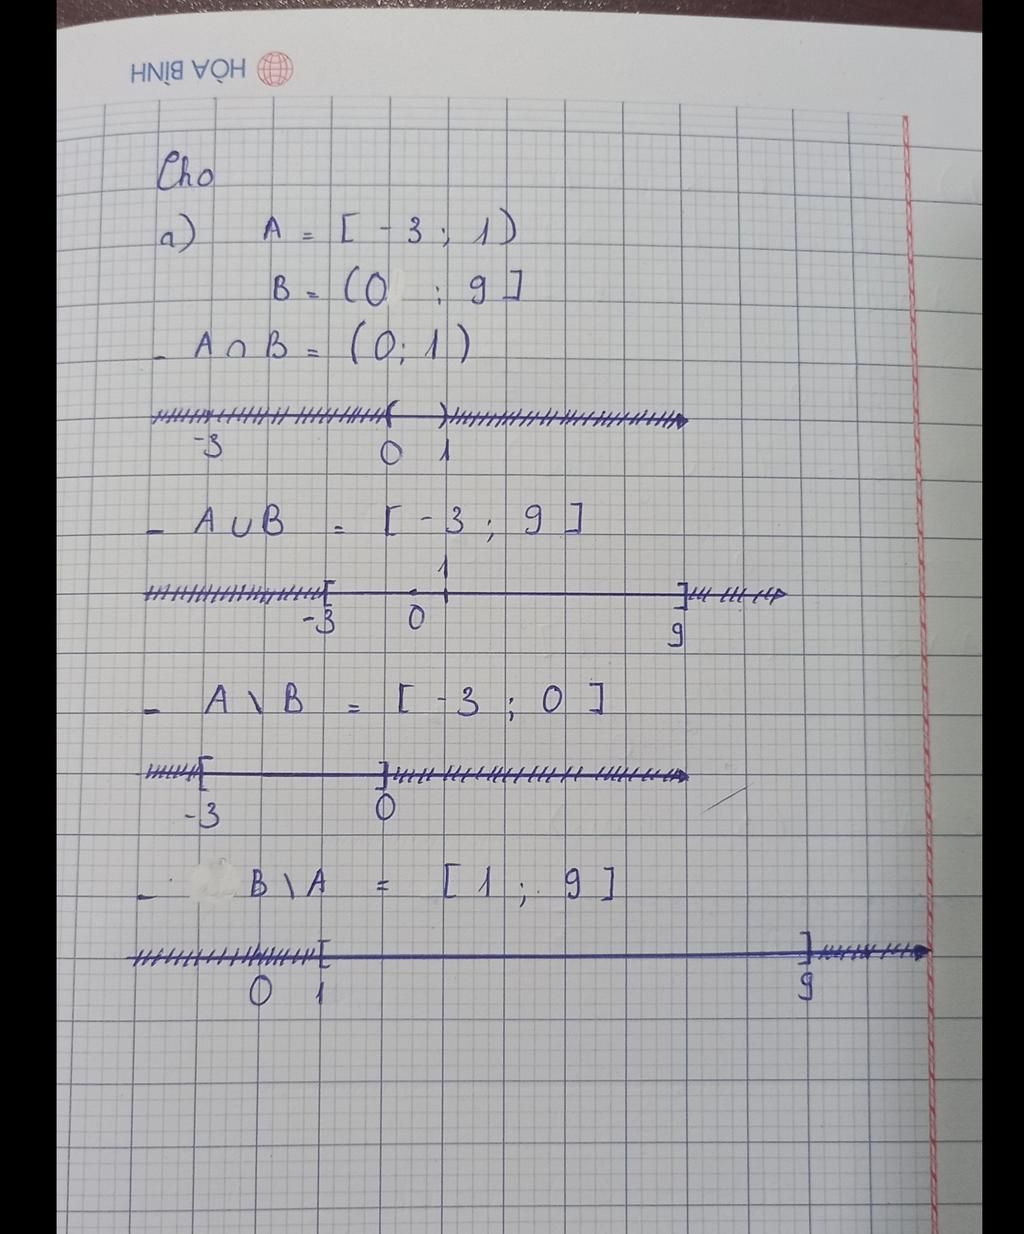 HÒA BÌNH
Cho
a) A = [ -3 ; 1)
B = (0 ; 9]
- A ∩ B = (0; 1)
-3 0 1
- A ∪ B = [ -3 ; 9 ]
1
-3 0 9
- A \ B = [ -3 ; 0 ]
-3 0
- B \ A = [ 1 ; 9 ]
0 1 9